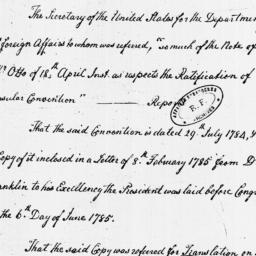 The Secretary of the United States for the Departmen
Foreign Affairs to whom was referred, "so much of the Note of
Mr Otto of 18th April Inst. as respects the Ratification of
sular Convention" —— Repo
That the said Convention is dated 29th July 1784,
Copy of it inclosed in a Letter of 8th February 1785 from D
anklin to his Excellency the President was laid before Congr
the 6th Day of June 1785.
That the said Copy was referred for Translation on